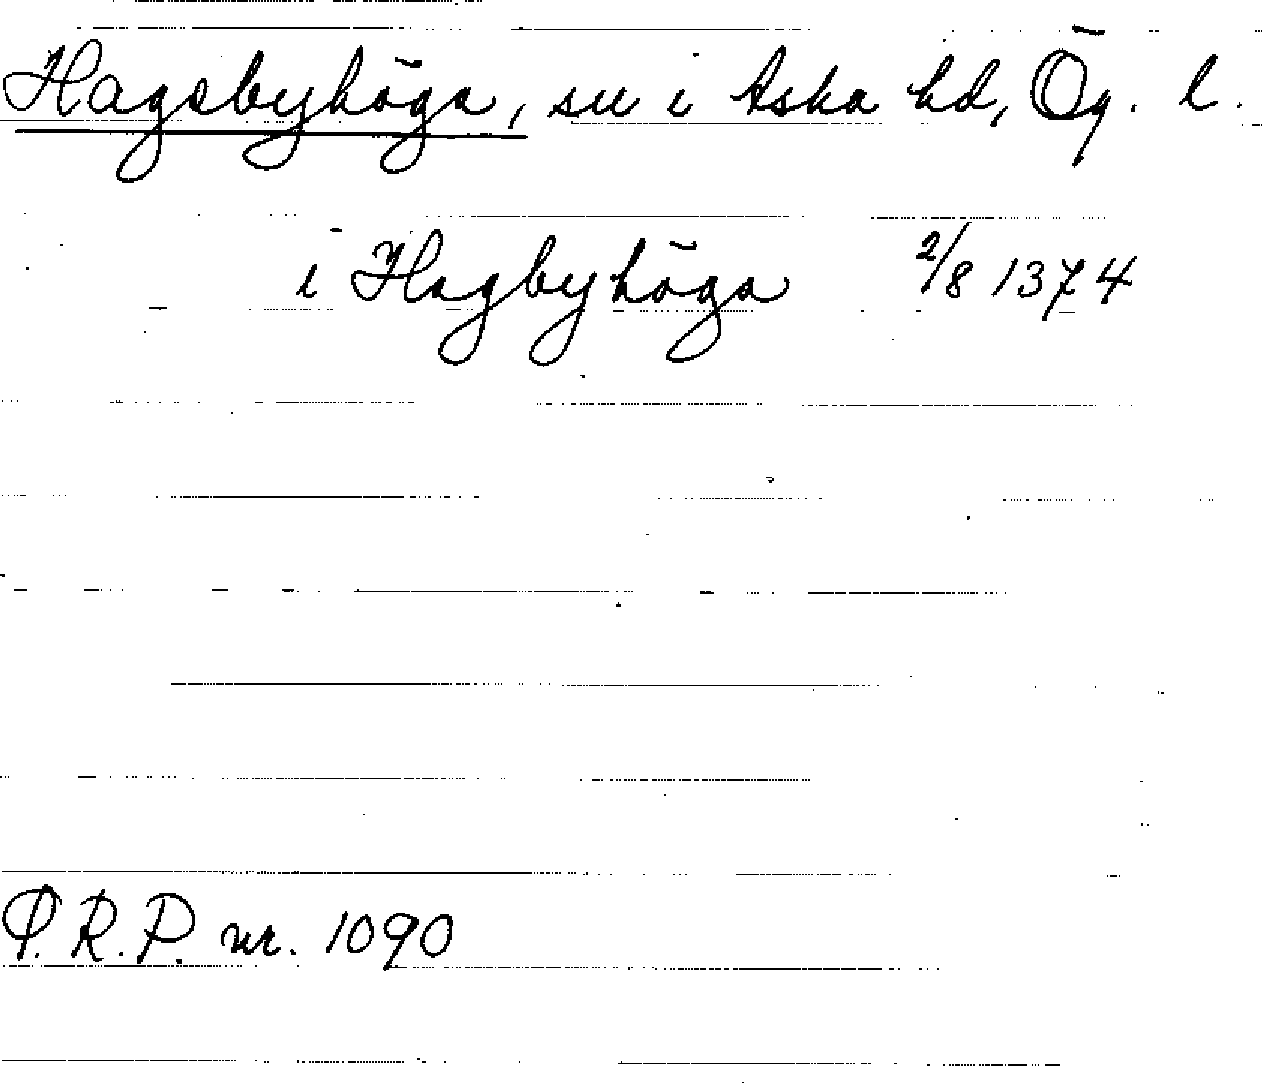 Hagebyhöga, sn i Aska hd, Ög. l.
i Hagbyhöga 2/8 1374
P.R.P. nr. 1090